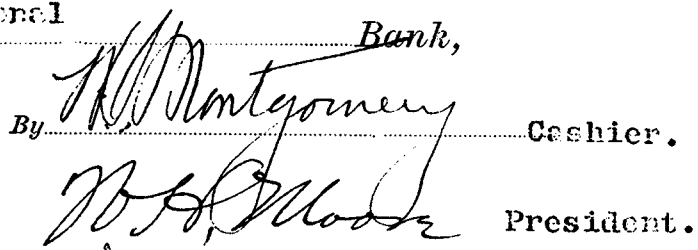 onal
Bank,
By W. S. Montgomery Cashier.
W. H. Moore President.